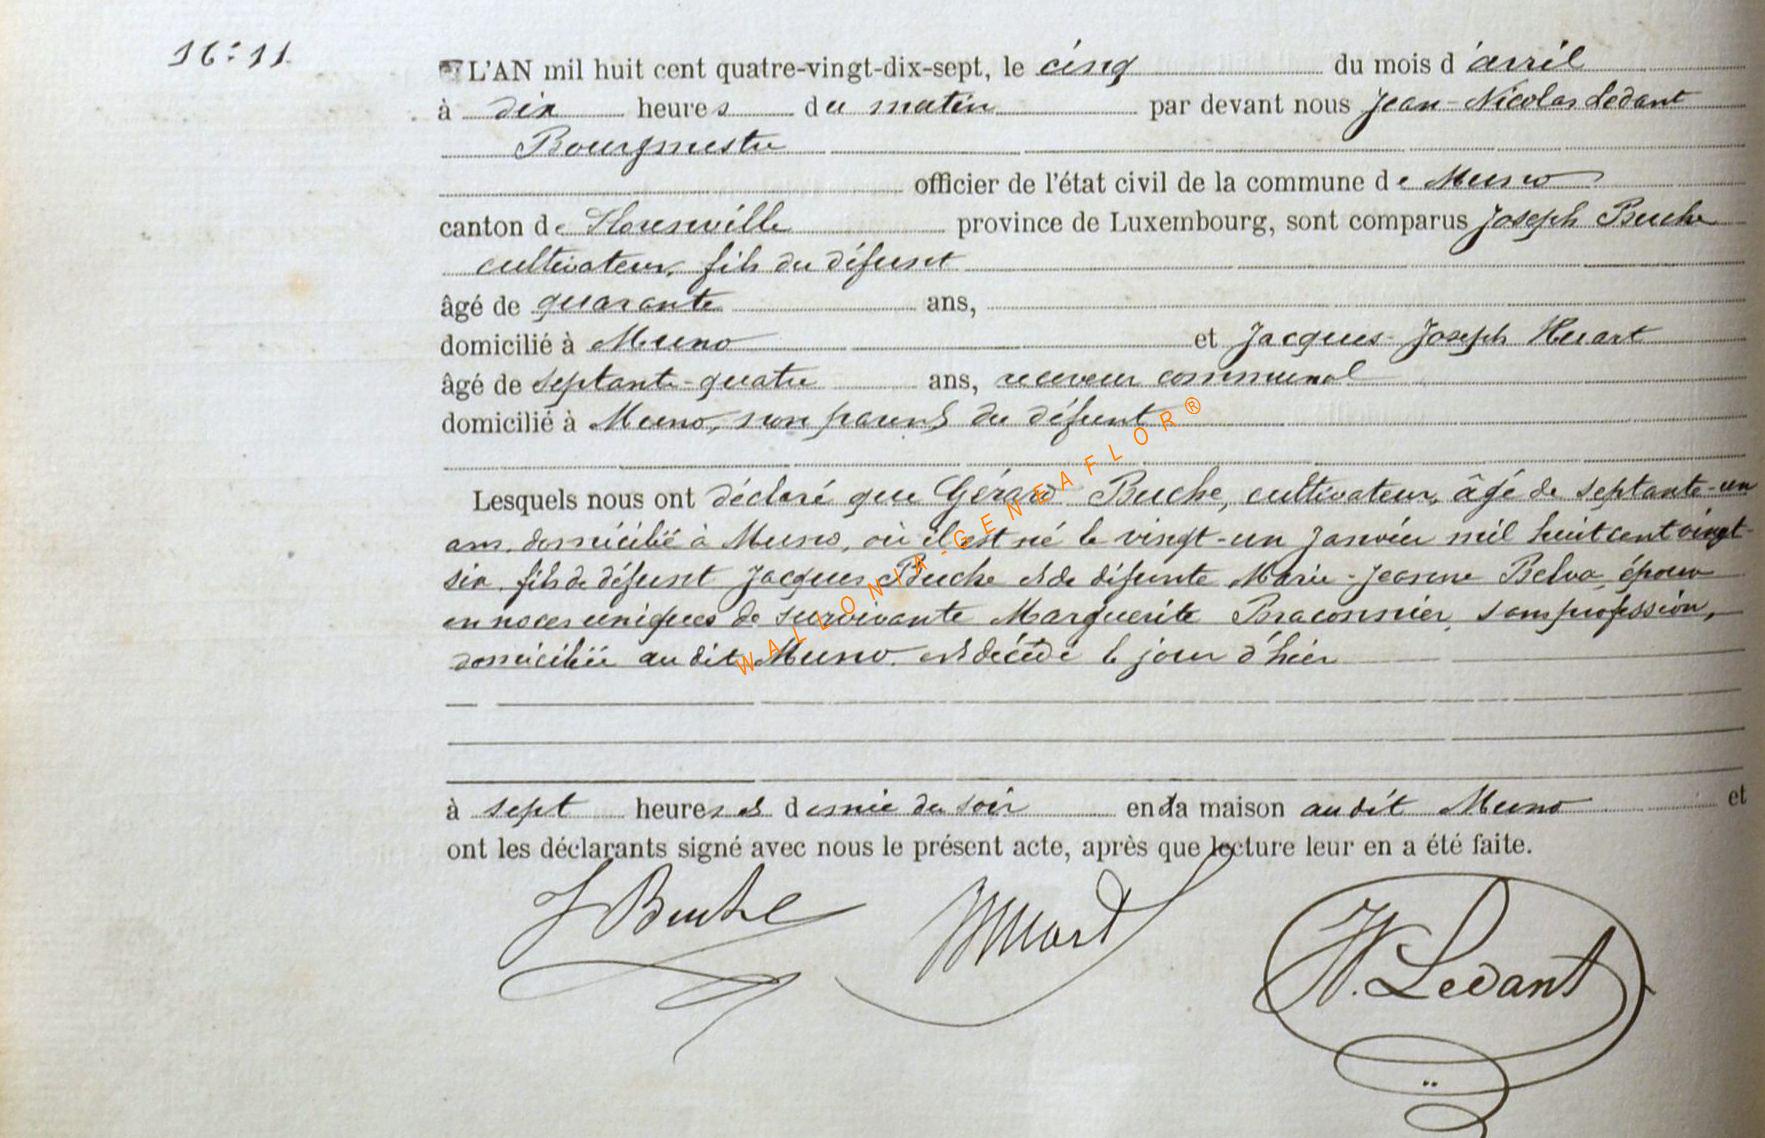 16:11
L'AN mil huit cent quatre-vingt-dix-sept, le cinq du mois d'avril
à dix heures du matin par devant nous Jean-Nicolas Ledant
Bourgmestre
officier de l'état civil de la commune de Muno
canton de Florenville province de Luxembourg, sont comparus Joseph Buche
cultivateur, fils du défunt
âgé de quarante ans,
domicilié à Muno et Jacques-Joseph Huart
âgé de septante-quatre ans, receveur communal
domicilié à Muno, non parent du défunt
Lesquels nous ont déclaré que Gérard Buche, cultivateur, âgé de septante-un
ans, domicilié à Muno, où il est né le vingt-un Janvier mil huit cent vingt-
six, fils de défunt Jacques Buche et de défunte Marie-Jeanne Belva, époux
en noces uniques de survivante Marguerite Braconnier, sans profession,
domiciliée au dit Muno. est décédé le jour d'hier
à sept heures et demie du soir en sa maison au dit Muno et
ont les déclarants signé avec nous le présent acte, après que lecture leur en a été faite.
J Buche Huart N. Ledant
WALLONIA-GENEAFLOR®